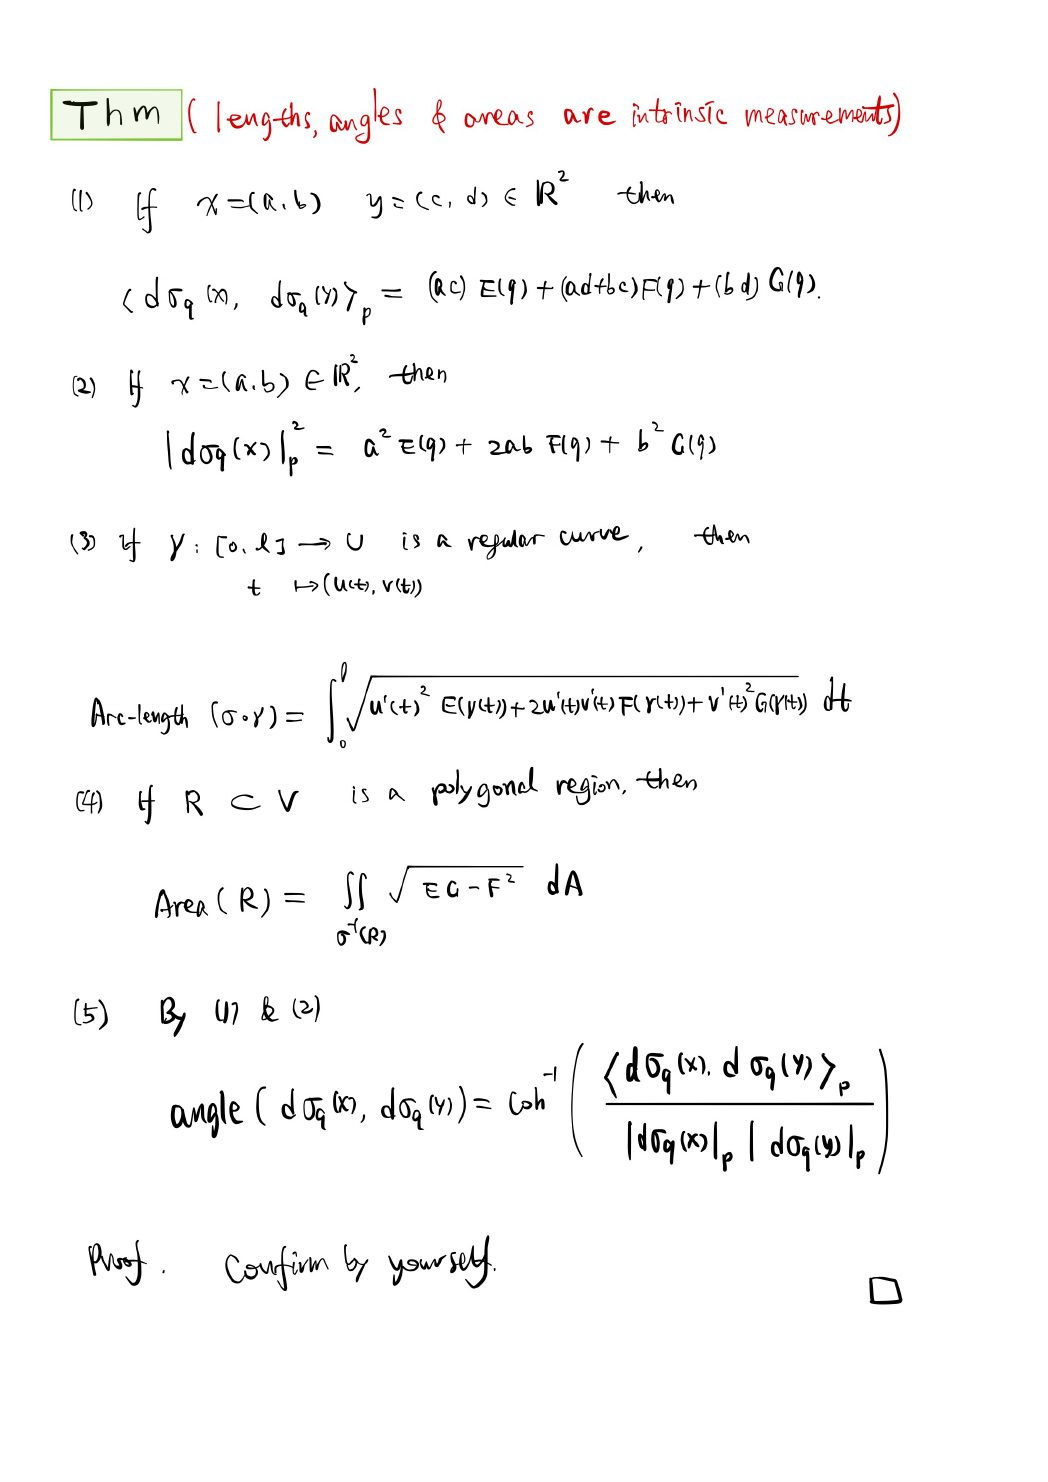 Thm ( lengths, angles & areas are intrinsic measurements)
(1) If x=(a,b) y=(c,d) ∈ ℝ² then
⟨dσ_q(x), dσ_q(y)⟩_p = (ac) E(q) + (ad+bc)F(q) + (bd) G(q).
(2) If x=(a,b) ∈ ℝ², then
|dσ_q(x)|_p² = a² E(q) + 2ab F(q) + b² G(q)
(3) If γ : [0, l] → U is a regular curve, then
t ↦ (u(t), v(t))
Arc-length (σ∘γ) = ∫_0^l √(u'(t)² E(γ(t)) + 2u'(t)v'(t) F(γ(t)) + v'(t)² G(γ(t))) dt
(4) If R ⊂ V is a polygonal region, then
Area ( R ) = ∬_{σ⁻¹(R)} √(EG - F²) dA
(5) By (1) & (2)
angle ( dσ_q(x), dσ_q(y)) = coh⁻¹ ( ⟨dσ_q(x), dσ_q(y)⟩_p / |dσ_q(x)|_p |dσ_q(y)|_p )
Proof. Confirm by yourself.
□